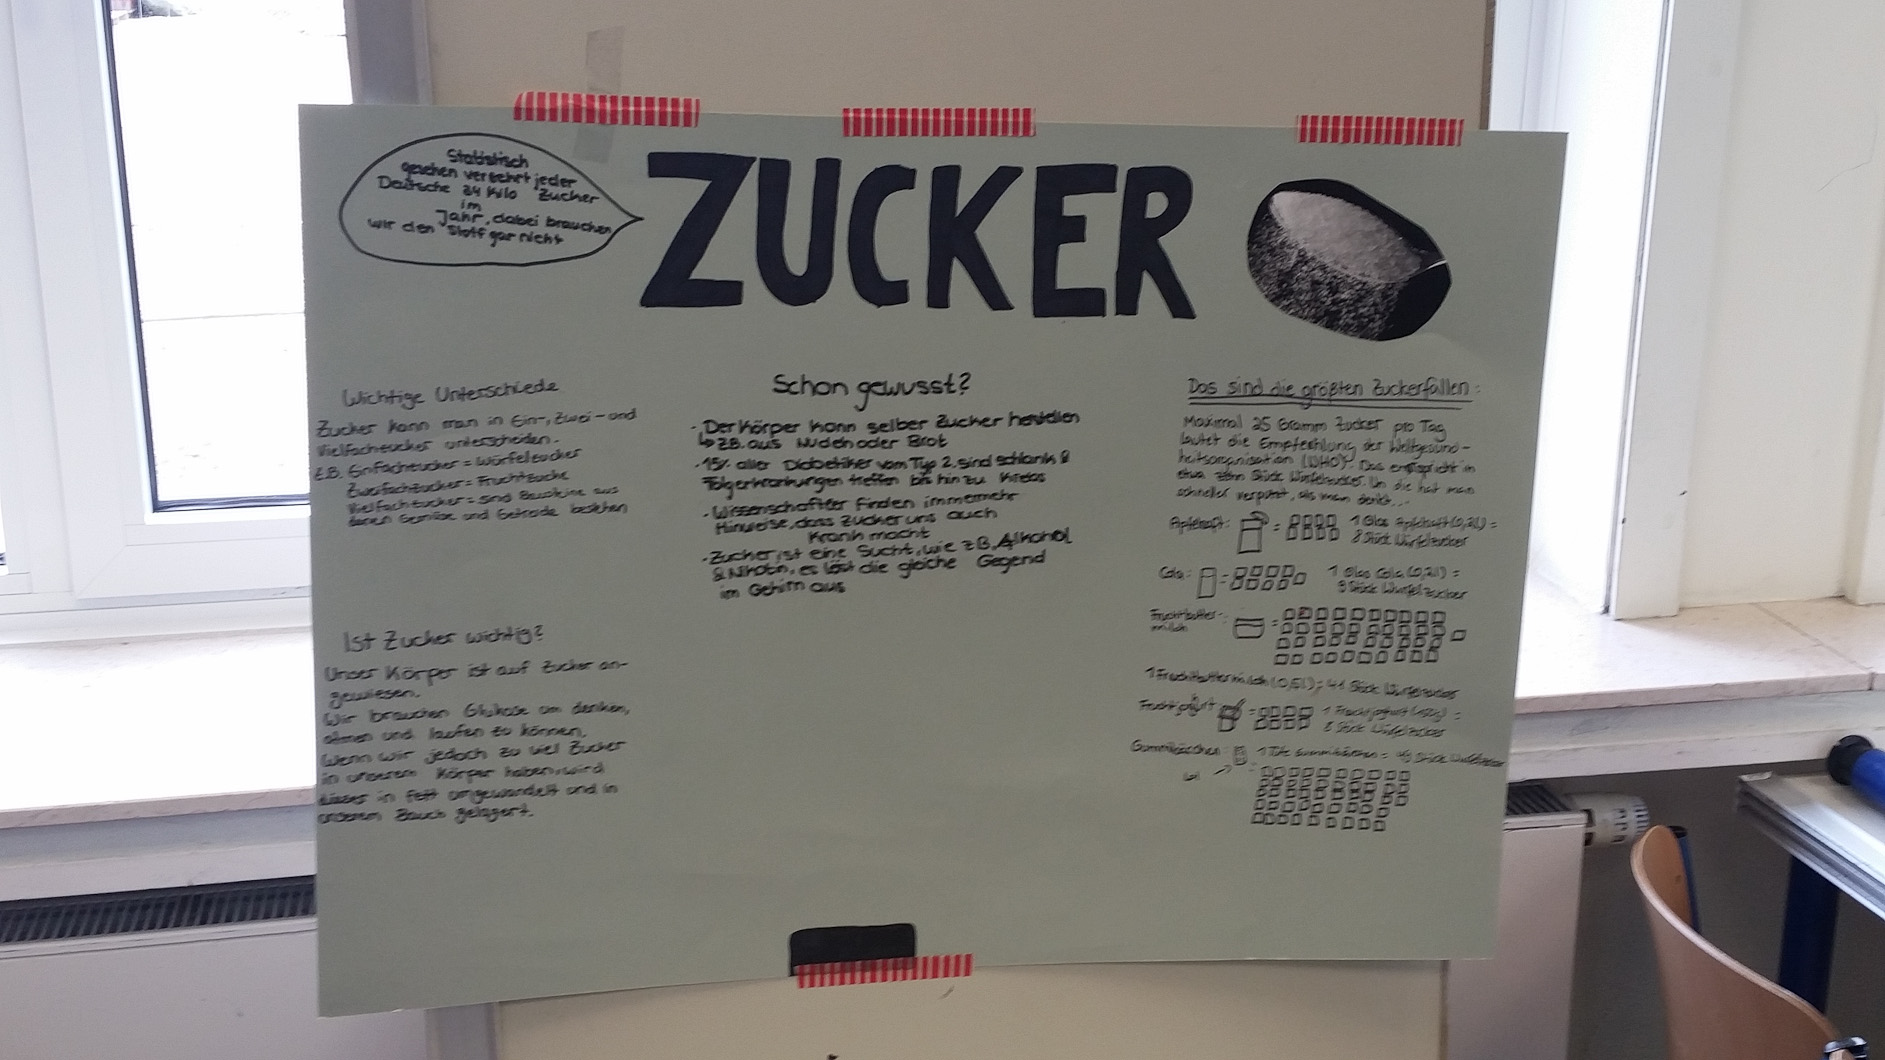 Statistisch
gesehen verzehrt jeder
Deutsche 34 Kilo Zucker
im
Jahr, dabei brauchen
wir den Stoff gar nicht
ZUCKER
Wichtige Unterschiede
Zucker kann man in Ein-, Zwei- und
Vielfachzucker unterscheiden.
z.B. Einfachzucker = Würfelzucker
Zweifachzucker = Fruchtzucke
Vielfachzucker = sind Bausteine aus
denen Gemüse und Getreide bestehen
Ist Zucker wichtig?
Unser Körper ist auf Zucker an-
gewiesen.
Wir brauchen Glukose um denken,
atmen und laufen zu können,
Wenn wir jedoch zu viel Zucker
in unserem Körper haben, wird
dieser in Fett umgewandelt und in
unserem Bauch gelagert.
Schon gewusst?
· Der Körper kann selber Zucker herstellen
↳ z.B. aus Nudeln oder Brot
· 15% aller Diabetiker vom Typ 2. sind schlank &
Folgerkrankungen treffen bis hin zu Krebs
· Wissenschaftler finden immermehr
Hinweise, dass Zucker uns auch
Krank macht
· Zucker ist eine Sucht, wie z.B. Alkohol
& Nikotin, es löst die gleiche Gegend
im Gehirn aus
Das sind die größten Zuckerfallen:
Maximal 25 Gramm Zucker pro Tag
lautet die Empfehlung der Weltgesund-
heitsorganisation (WHO). Das entspricht in
etwa zehn Stück Würfelzucker. Un die hat man
schneller verputzt, als man denkt...
Apfelsaft: = 1 Glas Apfelsaft (0,2l) =
8 Stück Würfelzucker
Cola: = 1 Glas Cola (0,2l) =
9 Stück Würfelzucker
Fruchtbutter-
milch =
1 Fruchtbuttermilch (0,5l); 41 Stück Würfelzucker
Fruchtjogurt = 1 Fruchtjogurt (150g) =
8 Stück Würfelzucker
Gummibärchen: 1 Tüte Gummibärchen = Stück Würfelzucker